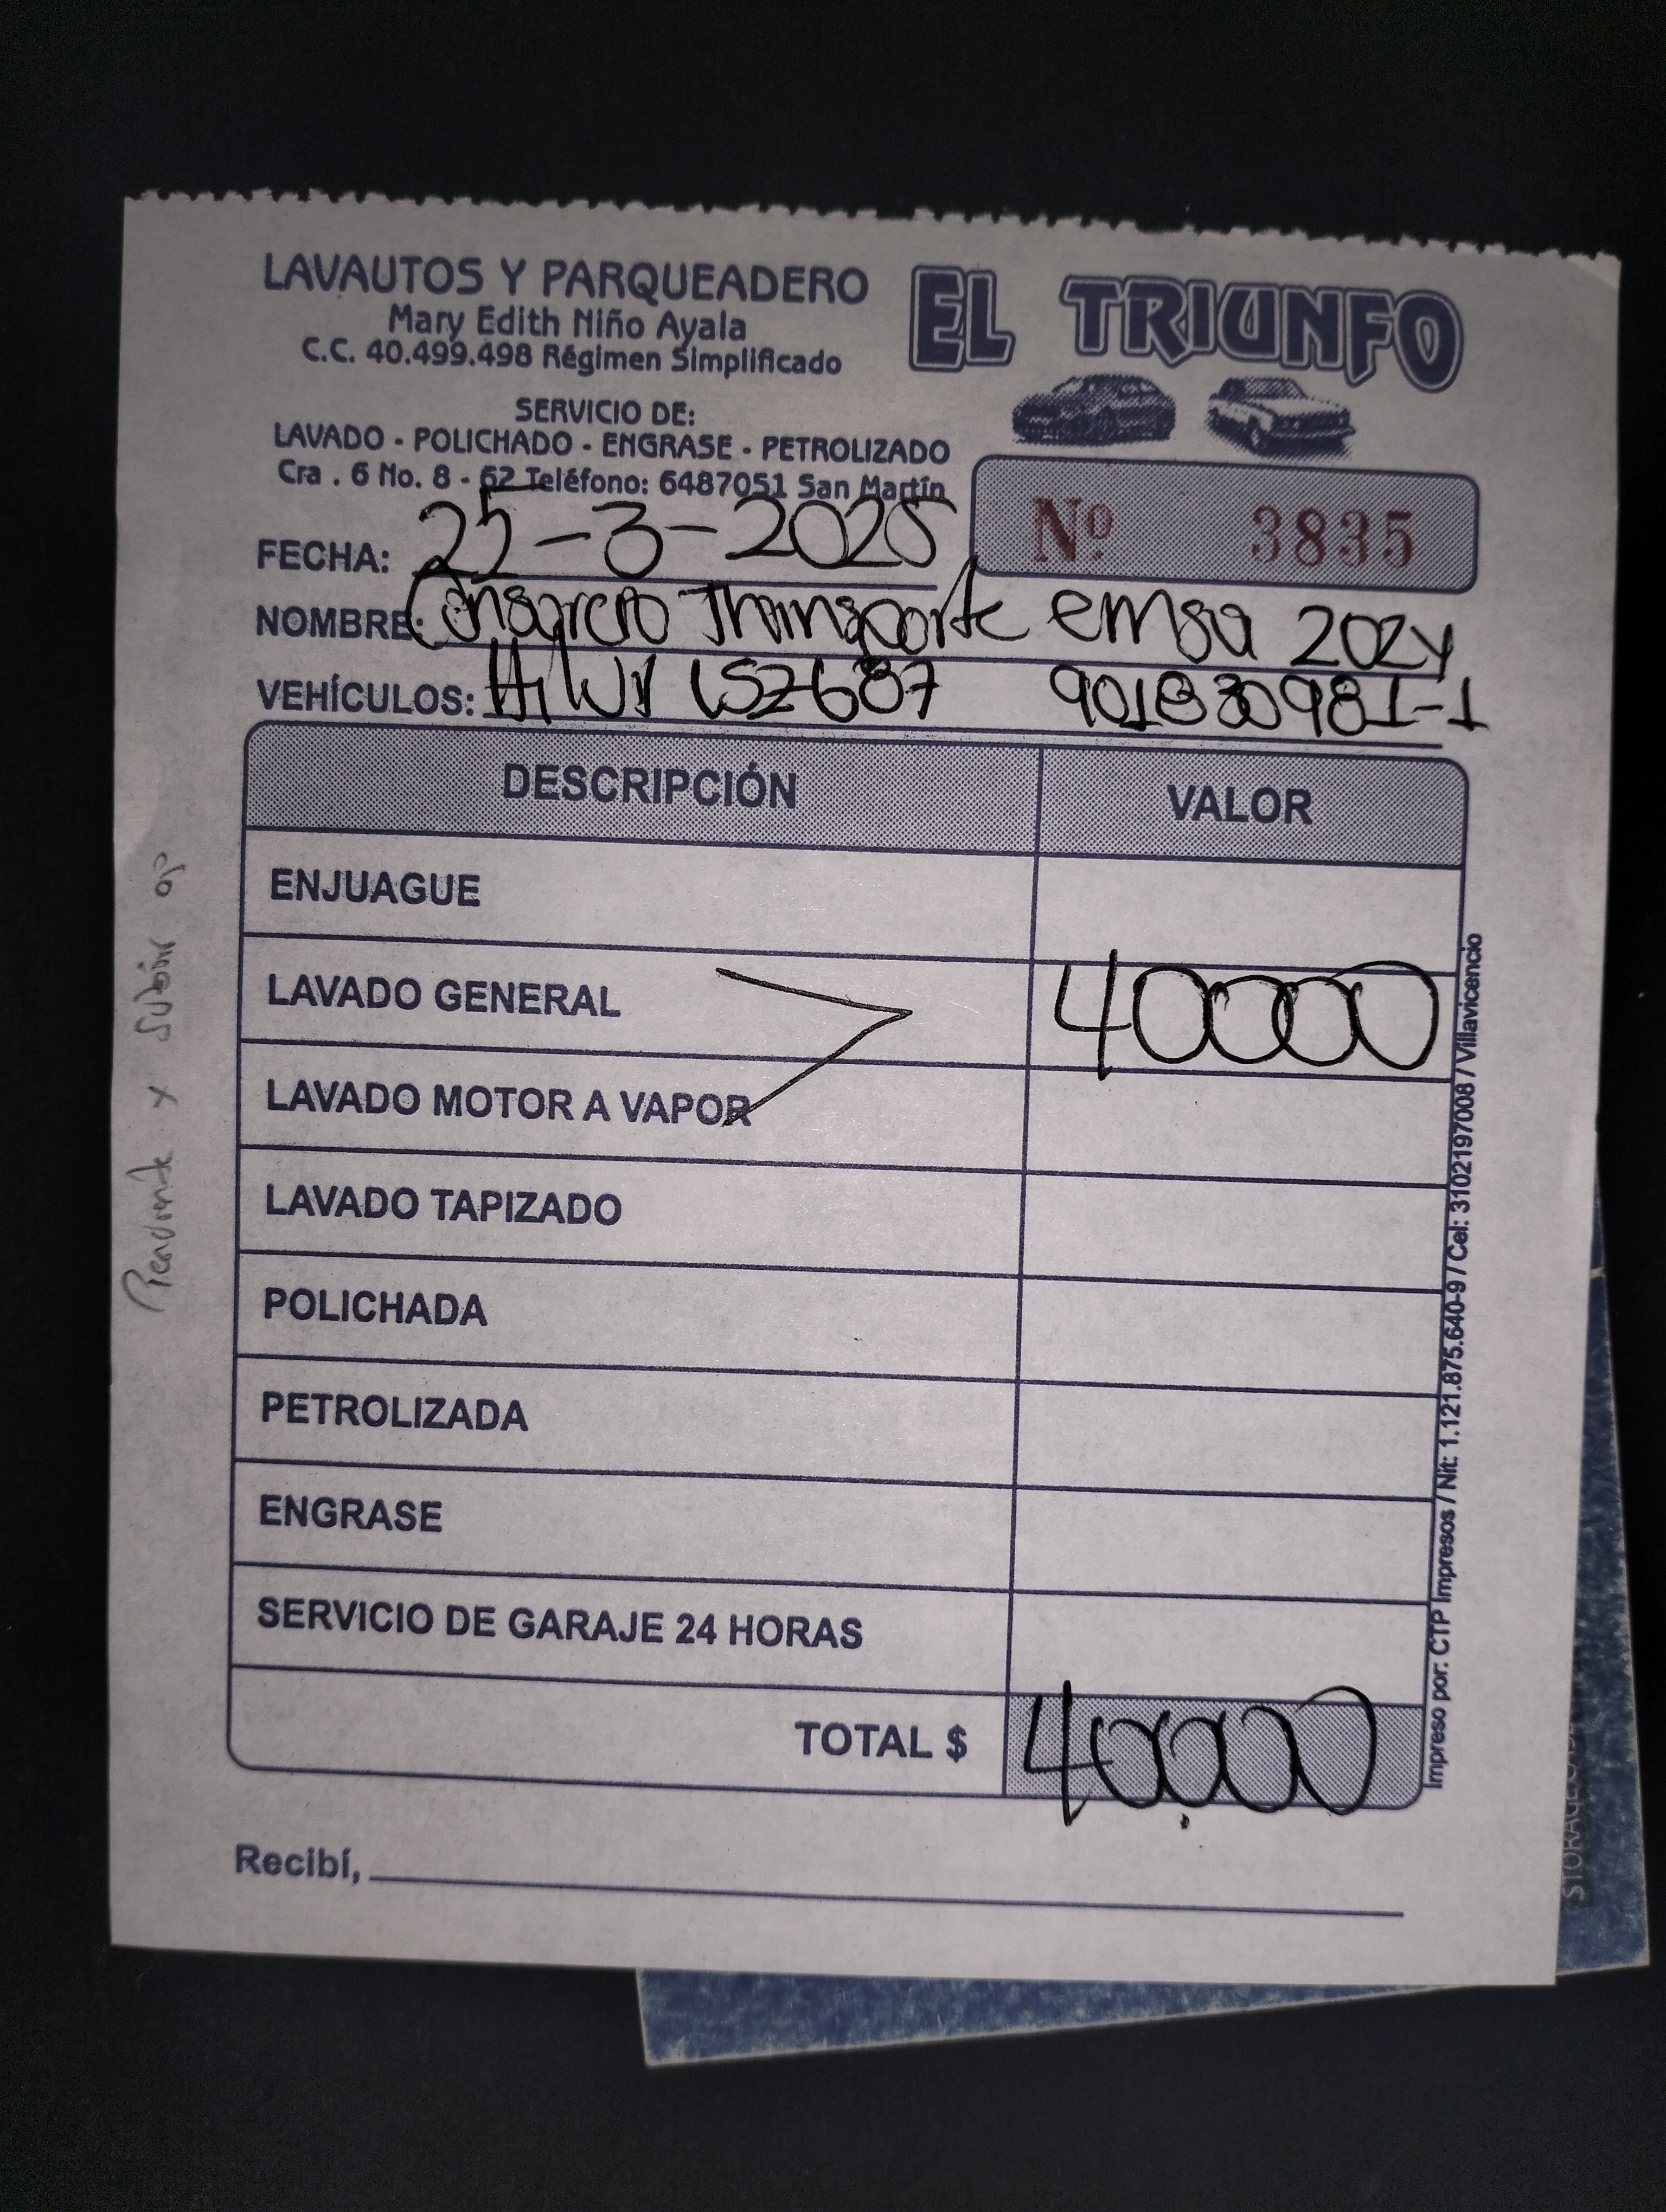 LAVAUTOS Y PARQUEADERO
EL TRIUNFO
Mary Edith Niño Ayala
C.C. 40.499.498 Régimen Simplificado
SERVICIO DE:
LAVADO - POLICHADO - ENGRASE - PETROLIZADO
Cra . 6 No. 8 - 62 Teléfono: 6487051 San Martín
Nº 3835
FECHA: 25-3-2025
NOMBRE: Consorcio Transporte emsa 2024
VEHÍCULOS: Hilux LSZ687 901830981-1
DESCRIPCIÓN VALOR
ENJUAGUE
LAVADO GENERAL 40000
LAVADO MOTOR A VAPOR
LAVADO TAPIZADO
POLICHADA
PETROLIZADA
ENGRASE
SERVICIO DE GARAJE 24 HORAS
TOTAL $ 40.000
Recibí,
Impreso por: CTP Impresos / Nit: 1.121.875.640-9 / Cel: 3102197008 / Villavicencio
Pendiente x subir
STORAGE